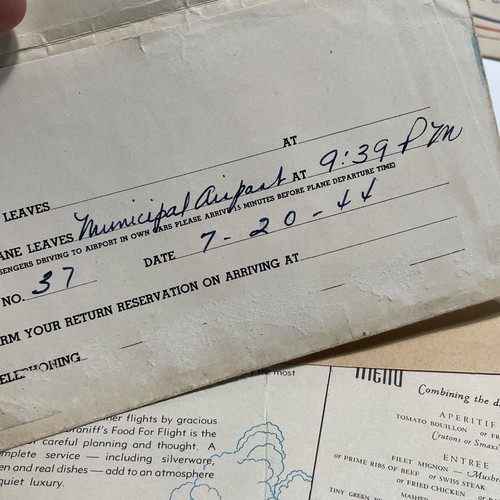 LEAVES AT
ANE LEAVES Municipal Airport AT 9:39 PM
SENGERS DRIVING TO AIRPORT IN OWN CARS PLEASE ARRIVE 15 MINUTES BEFORE PLANE DEPARTURE TIME)
NO. 37 DATE 7-20-44
RM YOUR RETURN RESERVATION ON ARRIVING AT
TELEPHONING
the most
her flights by gracious
raniff's Food For Flight is the
careful planning and thought. A
mplete service — including silverware,
en and real dishes — add to an atmosphere
quiet luxury.
menu
Combining the d
APERITIF
TOMATO BOUILLON or FR
Crutons or Smax
ENTREE
FILET MIGNON — Mushr
or PRIME RIBS OF BEEF or SWISS STEAK
or FRIED CHICKEN
MASHE
TINY GREEN